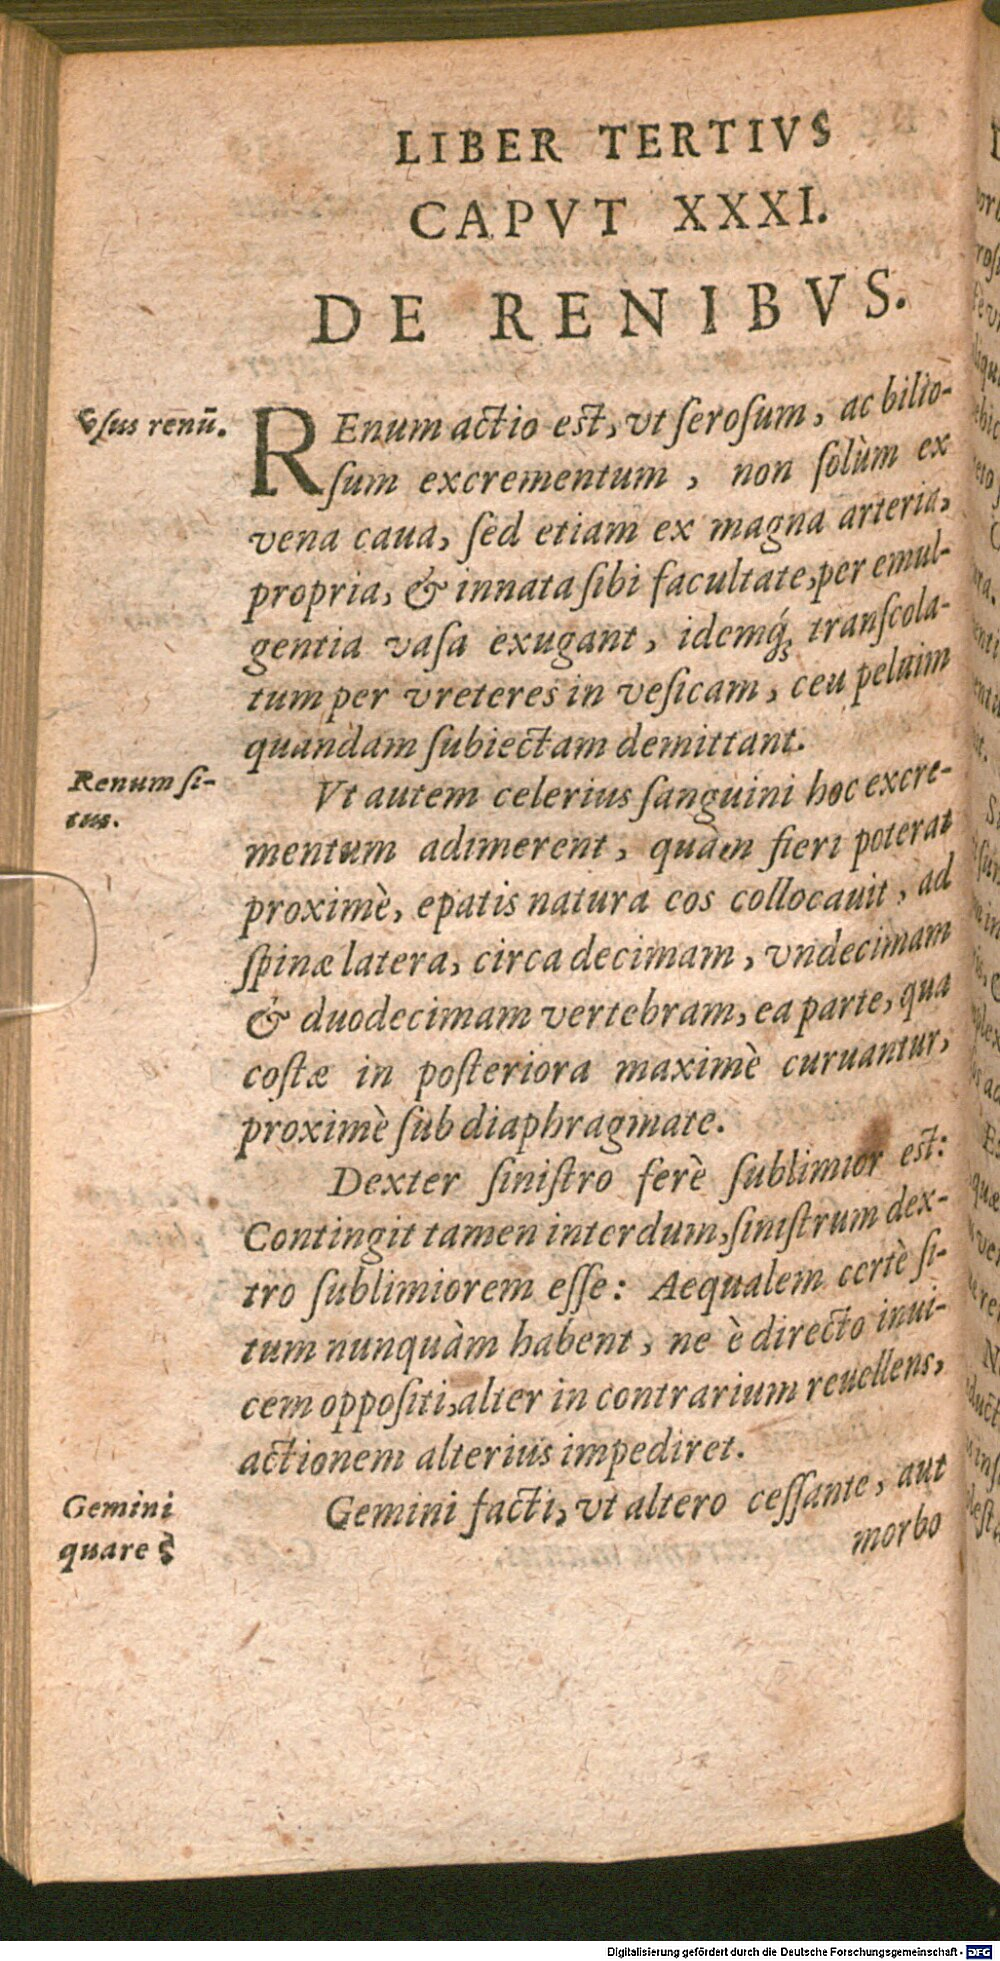 LIBER TERTIVS
CAPVT XXXI.
DE RENIBVS.
Vſus renū.
REnum actio est, vt ſeroſum, ac bilio-
ſum excrementum, non ſolùm ex
vena caua, ſed etiam ex magna arteria,
propria, & innata ſibi facultate, per emul-
gentia vaſa exugant, idemq́; tranſcola-
tum per vreteres in veſicam, ceu peluim
quandam ſubiectam demittant.
Renum ſi-
tus.
Vt autem celerius ſanguini hoc excre-
mentum adimerent, quàm fieri poterat
proximè, epatis natura eos collocauit, ad
ſpinæ latera, circa decimam, vndecimam
& duodecimam vertebram, ea parte, qua
coſtæ in poſteriora maximè curuantur,
proximè ſub diaphragmate.
Dexter ſiniſtro ferè ſublimior est:
Contingit tamen interdum, ſiniſtrum dex-
tro ſublimiorem eſſe: Aequalem certè ſi-
tum nunquàm habent, ne è directo inui-
cem oppoſiti, alter in contrarium reuellens,
actionem alterius impediret.
Gemini
quare ?
Gemini facti, vt altero ceſſante, aut
morbo
Digitalisierung gefördert durch die Deutsche Forschungsgemeinschaft - DFG